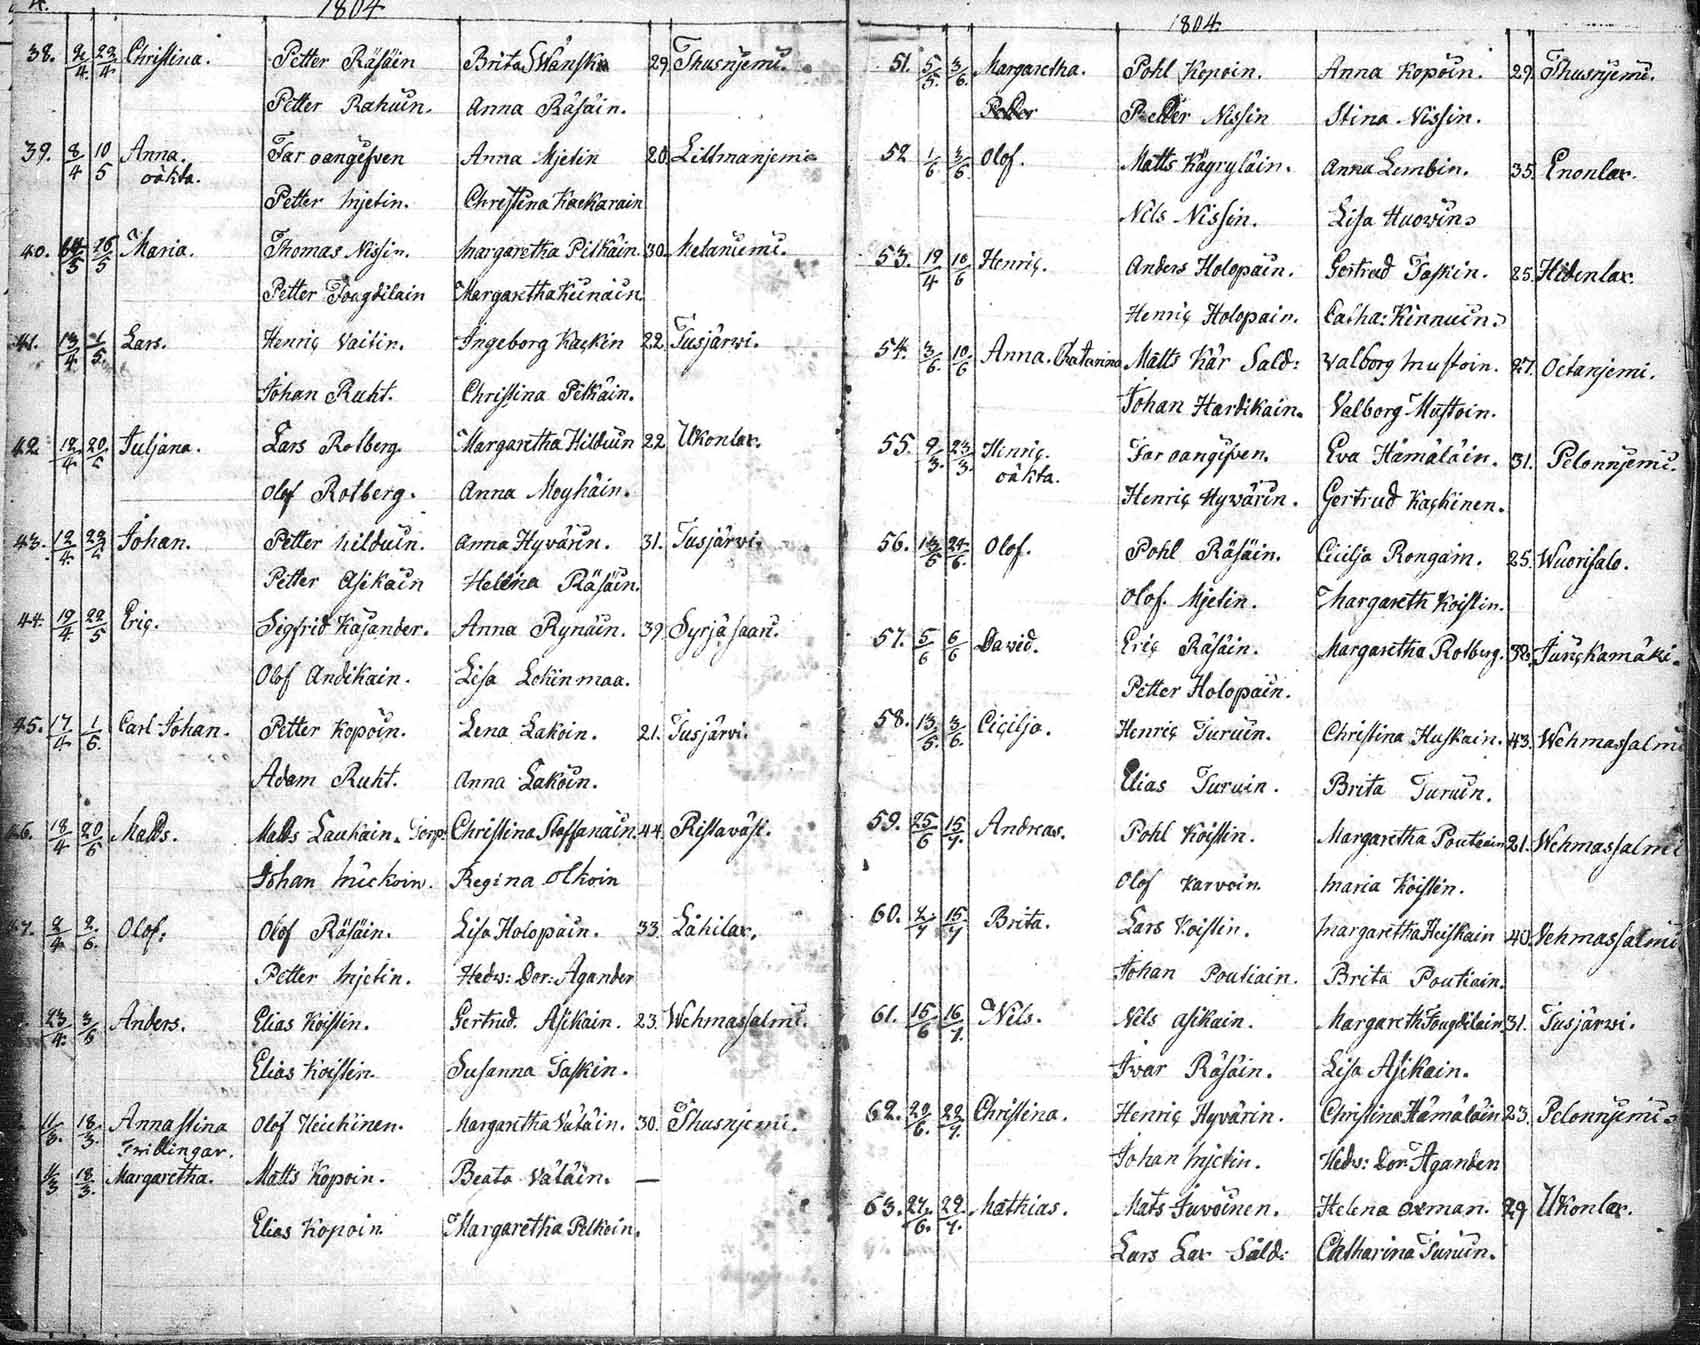 1804
38. 2/4 23/4 Christina. Petter Räsäin Brita Swansk 29. Thusnjemi.
Petter Rahuin. Anna Räsäin.
39. 8/4 10/5 Anna. Far oangifven Anna Mjetin 20. Littmanjemi
oäkta. Petter Mjetin. Christina Kackarain
40. 16/5 Maria. Thomas Nissin. Margaretha Pitkäin. 30. Metaniemi.
Petter Tougdilain Margaretha Keinäin
41. 13/4 1/5 Lars. Henriç Vaitin. Ingeborg Kaçkin 22. Tusjärwi.
Johan Ruht. Christina Pitkäin.
42. 12/4 20/5 Juljana. Lars Rotberg. Margaretha Hilduin 22. Ukonlax.
Olof Rotberg. Anna Moyhäin.
43. 12/4 22/4 Johan. Petter Hilduin. Anna Hyvärin. 31. Tusjärvi.
Petter Asikain Helena Räsäin.
44. 19/4 22/5 Eriç. Sigfrid Kajander. Anna Rynäin. 39. Syrjäsaari.
Olof Andikain. Lisa Lehinmaa.
45. 17/4 1/6 Carl Johan. Petter Kopoin. Lena Lakoin. 21. Tusjärvi.
Adam Ruht. Anna Lakoin.
46. 18/4 20/5 Matts. Matts Laukain. Torp: Christina Staffanain. 44. Ristaväsi.
Johan Mickoin. Regina Olkoin
47. 2/4 2/6 Olof. Olof Räsäin. Lisa Holopain. 33. Lähilax.
Petter Mjetin. Hedv: Dor: Agander
23/4 3/6 Anders. Elias Koistin. Gertrud. Asikain. 23. Wehmassalmi.
Elias Koistin. Susanna Taskin.
11/3 18/3 Annastina Olof Heichinen. Margaretha Vätäin. 30. Thusnjemi.
Tvillingar.
11/3 18/3 Margaretha. Matts Kopoin. Beata Vätäin. —
Elias Kopoin. Margaretha Pelkoin.
1804
51. 5/5 3/6 Margaretha. Pohl Kopoin. Anna Kopoin. 29. Thusnjemi.
Petter Petter Nissin Stina Nissin.
52 1/6 3/6 Olof. Matts Käyryläin. Anna Lembin. 35. Enonlax.
Nils Nissin. Lisa Huowin.
53. 19/4 10/6 Henriç. Anders Holopain. Gertrud Taskin. 25. Hidenlax.
Henriç Holopain. Catha: Kinnuin.
54. 3/6 10/6 Anna. Chatarina Matts Kär Sold: Valborg Mustoin. 27. Octanjemi.
Johan Hardikain. Valborg Mustoin.
55. 2/3 23/3 Henriç. Far oangifven. Eva Hämäläin. 31. Pelonnjemi.
oäkta. Henriç Hyvärin. Gertrud Kaçkinen.
56. 13/5 24/6 Olof. Pohl Räsäin. Cicilja Rongain. 25. Wuorisalo.
Olof. Mjetin. Margareth Koistin.
57. 5/6 6/6 David. Eriç Räsäin. Margaretha Rotberg. 38. Jurçkamäki.
Petter Holopain.
58. 13/5 3/6 Cicilja. Henriç Turuin. Christina Huskain. 43. Wehmassalmi
Elias Turuin. Brita Turuin.
59. 25/6 15/7 Andreas. Pohl Koistin. Margaretha Poutiain 21. Wehmassalmi
Olof Karvoin. Maria Koistin.
60. 2/7 15/7 Brita. Lars Koistin. Margaretha Heiskain 40. Vehmassalmi
Johan Poutiain. Brita Poutiain.
61. 15/6 16/7 Nils. Nils Asikain. Margareth Tougdilain 31. Tusjärwi.
Ivar Räsäin. Lisa Asikain.
62. 20/6 22/7 Christina. Henriç Hyvärin. Christina Hämäläin 23. Pelonnjemi.
Johan Mjetin. Hedv: Dor Aganden
63. 27/6 29/7 Mathias. Mats Juvoinen. Helena Oxman. 29 Ukonlax.
Lars Lax Sold: Chatharina Turuin.